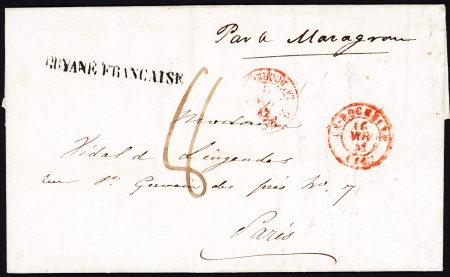 Par le Maragnon
GUYANE FRANCAISE
Monsieur
Vidal de Lingendes
rue St Germain des prés No. 7
Paris